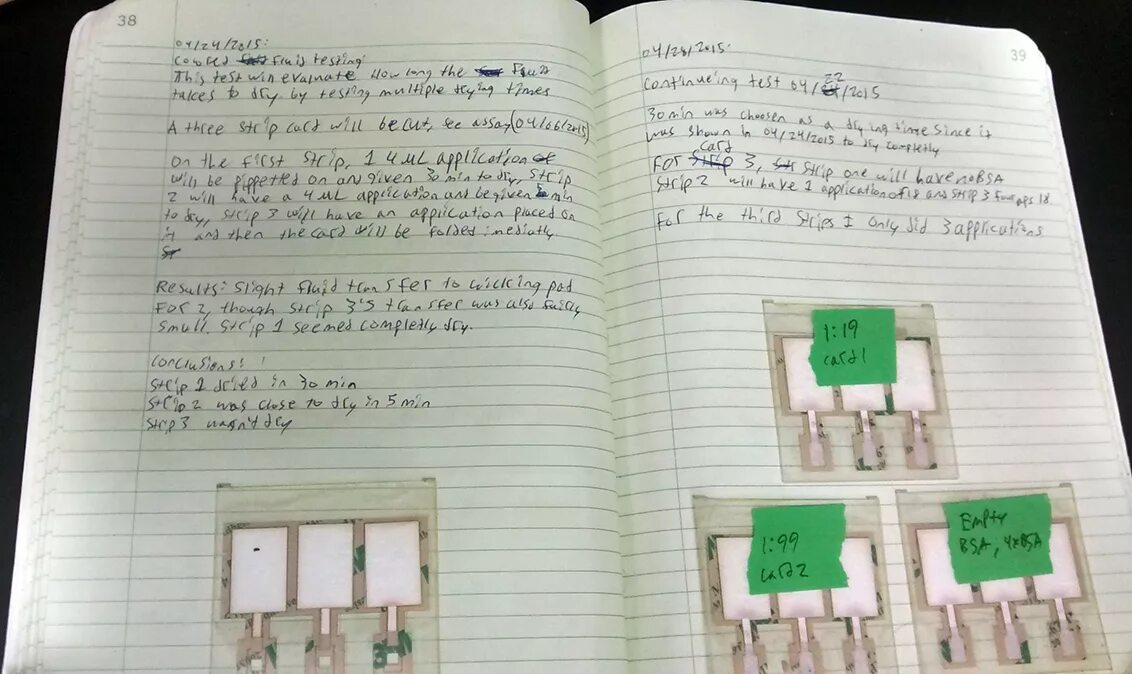 38
04/24/2015:
Covered Fluid testing:
This test will evaluate How long the Fluid
takes to dry by testing multiple drying times
A three strip card will be cut, see assay (04/06/2015)
On the first strip, 1 4 µL application
will be pippetted on and given 30 min to dry, Strip
2 will have a 4 µL application and be given min
to dry, Strip 3 will have an application placed on
it and then the card will be folded imediatly
Results: Slight fluid transfer to wicking pad
For 2, though strip 3's transfer was also fairly
small. Strip 1 seemed completly dry.
Conclusions:
Strip 1 dried in 30 min
Strip 2 was close to dry in 5 min
Strip 3 wasn't dry
39
04/28/2015:
Continueing test 04/22/2015
30 min was choosen as a drying time since it
was shown in 04/24/2015 to dry completly
For card 3, strip one will have no BSA
Strip 2 will have 1 application of 18 and strip 3 four aps 18
For the third strips I only did 3 applications
1:19
card 1
1:99
card 2
Empty
BSA, 4xBSA